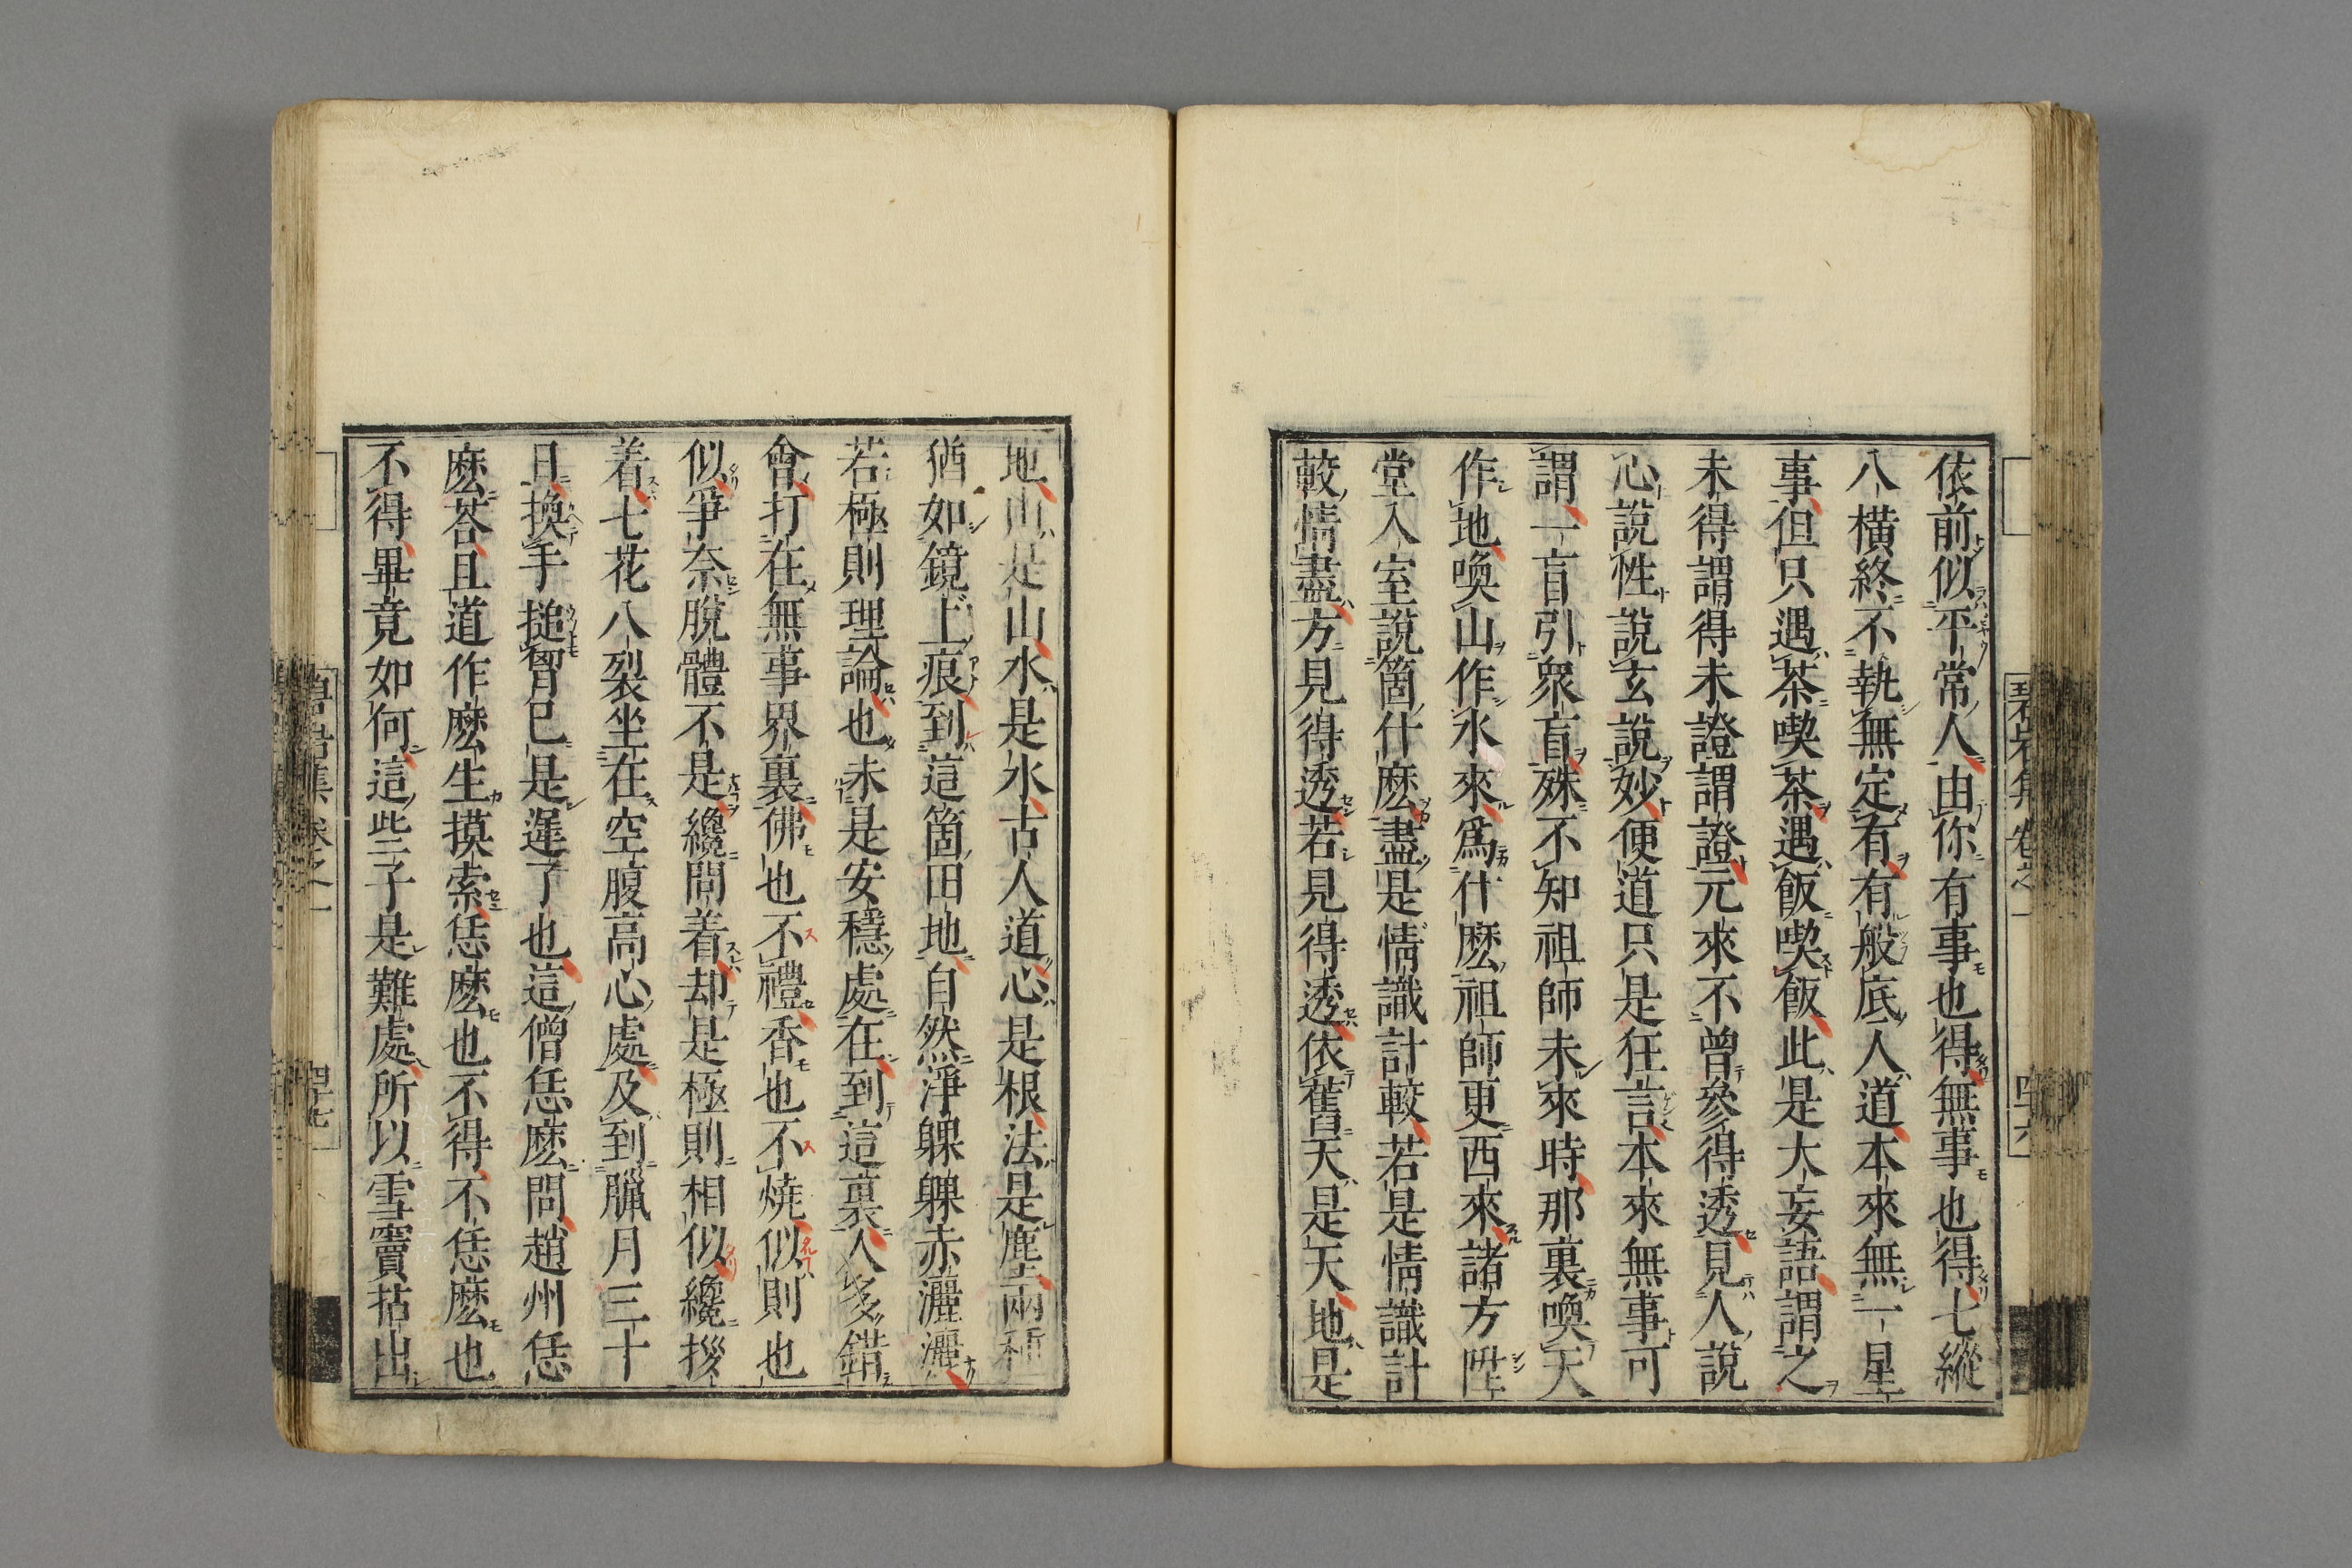 依前似平常人由你有事也得無事也得七縱
八橫終不執無定有有般底人道本來無一星
事但只遇茶喫茶遇飯喫飯此是大妄語謂之
未得謂得未證謂證元來不曾參得透見人說
心說性說玄說妙便道只是狂言本來無事可
謂一盲引衆盲殊不知祖師未來時那裏喚天
作地喚山作水來爲什麽祖師更西來諸方陞
堂入室說箇什麽盡是情識計較若是情識計
較情盡方見得透若見得透依舊天是天地是
地山是山水是水古人道心是根法是塵兩種
猶如鏡上痕到這箇田地自然淨躶躶赤灑灑
若極則理論也未是安穩處在到這裏人多錯
會打在無事界裏佛也不禮香也不燒似則也
似爭奈脫體不是纔問着却是極則相似纔拶
着七花八裂坐在空腹高心處及到臘月三十
日換手搥胷已是遲了也這僧恁麽問趙州恁
麽荅且道作麽生摸索恁麽也不得不恁麽也
不得畢竟如何這些子是難處所以雪竇拈出